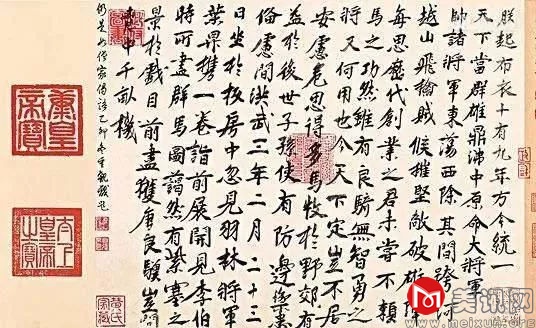 朕起布衣十有九年方今統一
天下當群雄鼎沸中原命大將軍
帥諸將軍東蕩西除其間跨河
越山飛擒賊候摧堅敵破雄陣
每思歷代創業之君未嘗不賴
馬之功然雖有良騎無智勇之
將又何用也今天下定豈不居
安慮危思得多馬牧於野郊有
益於後世子孫使有防邊禦患
備慮間洪武三年二月二十三
日坐於板房中忽見羽林將軍
葉昇攜一卷詣前展開見李伯
時所畫群馬圖藹然有紫塞之
景於戲目前盡獲唐良驥豈問
胸中千畝機
乙卯冬重觀識
太上皇帝之寶
美讯网